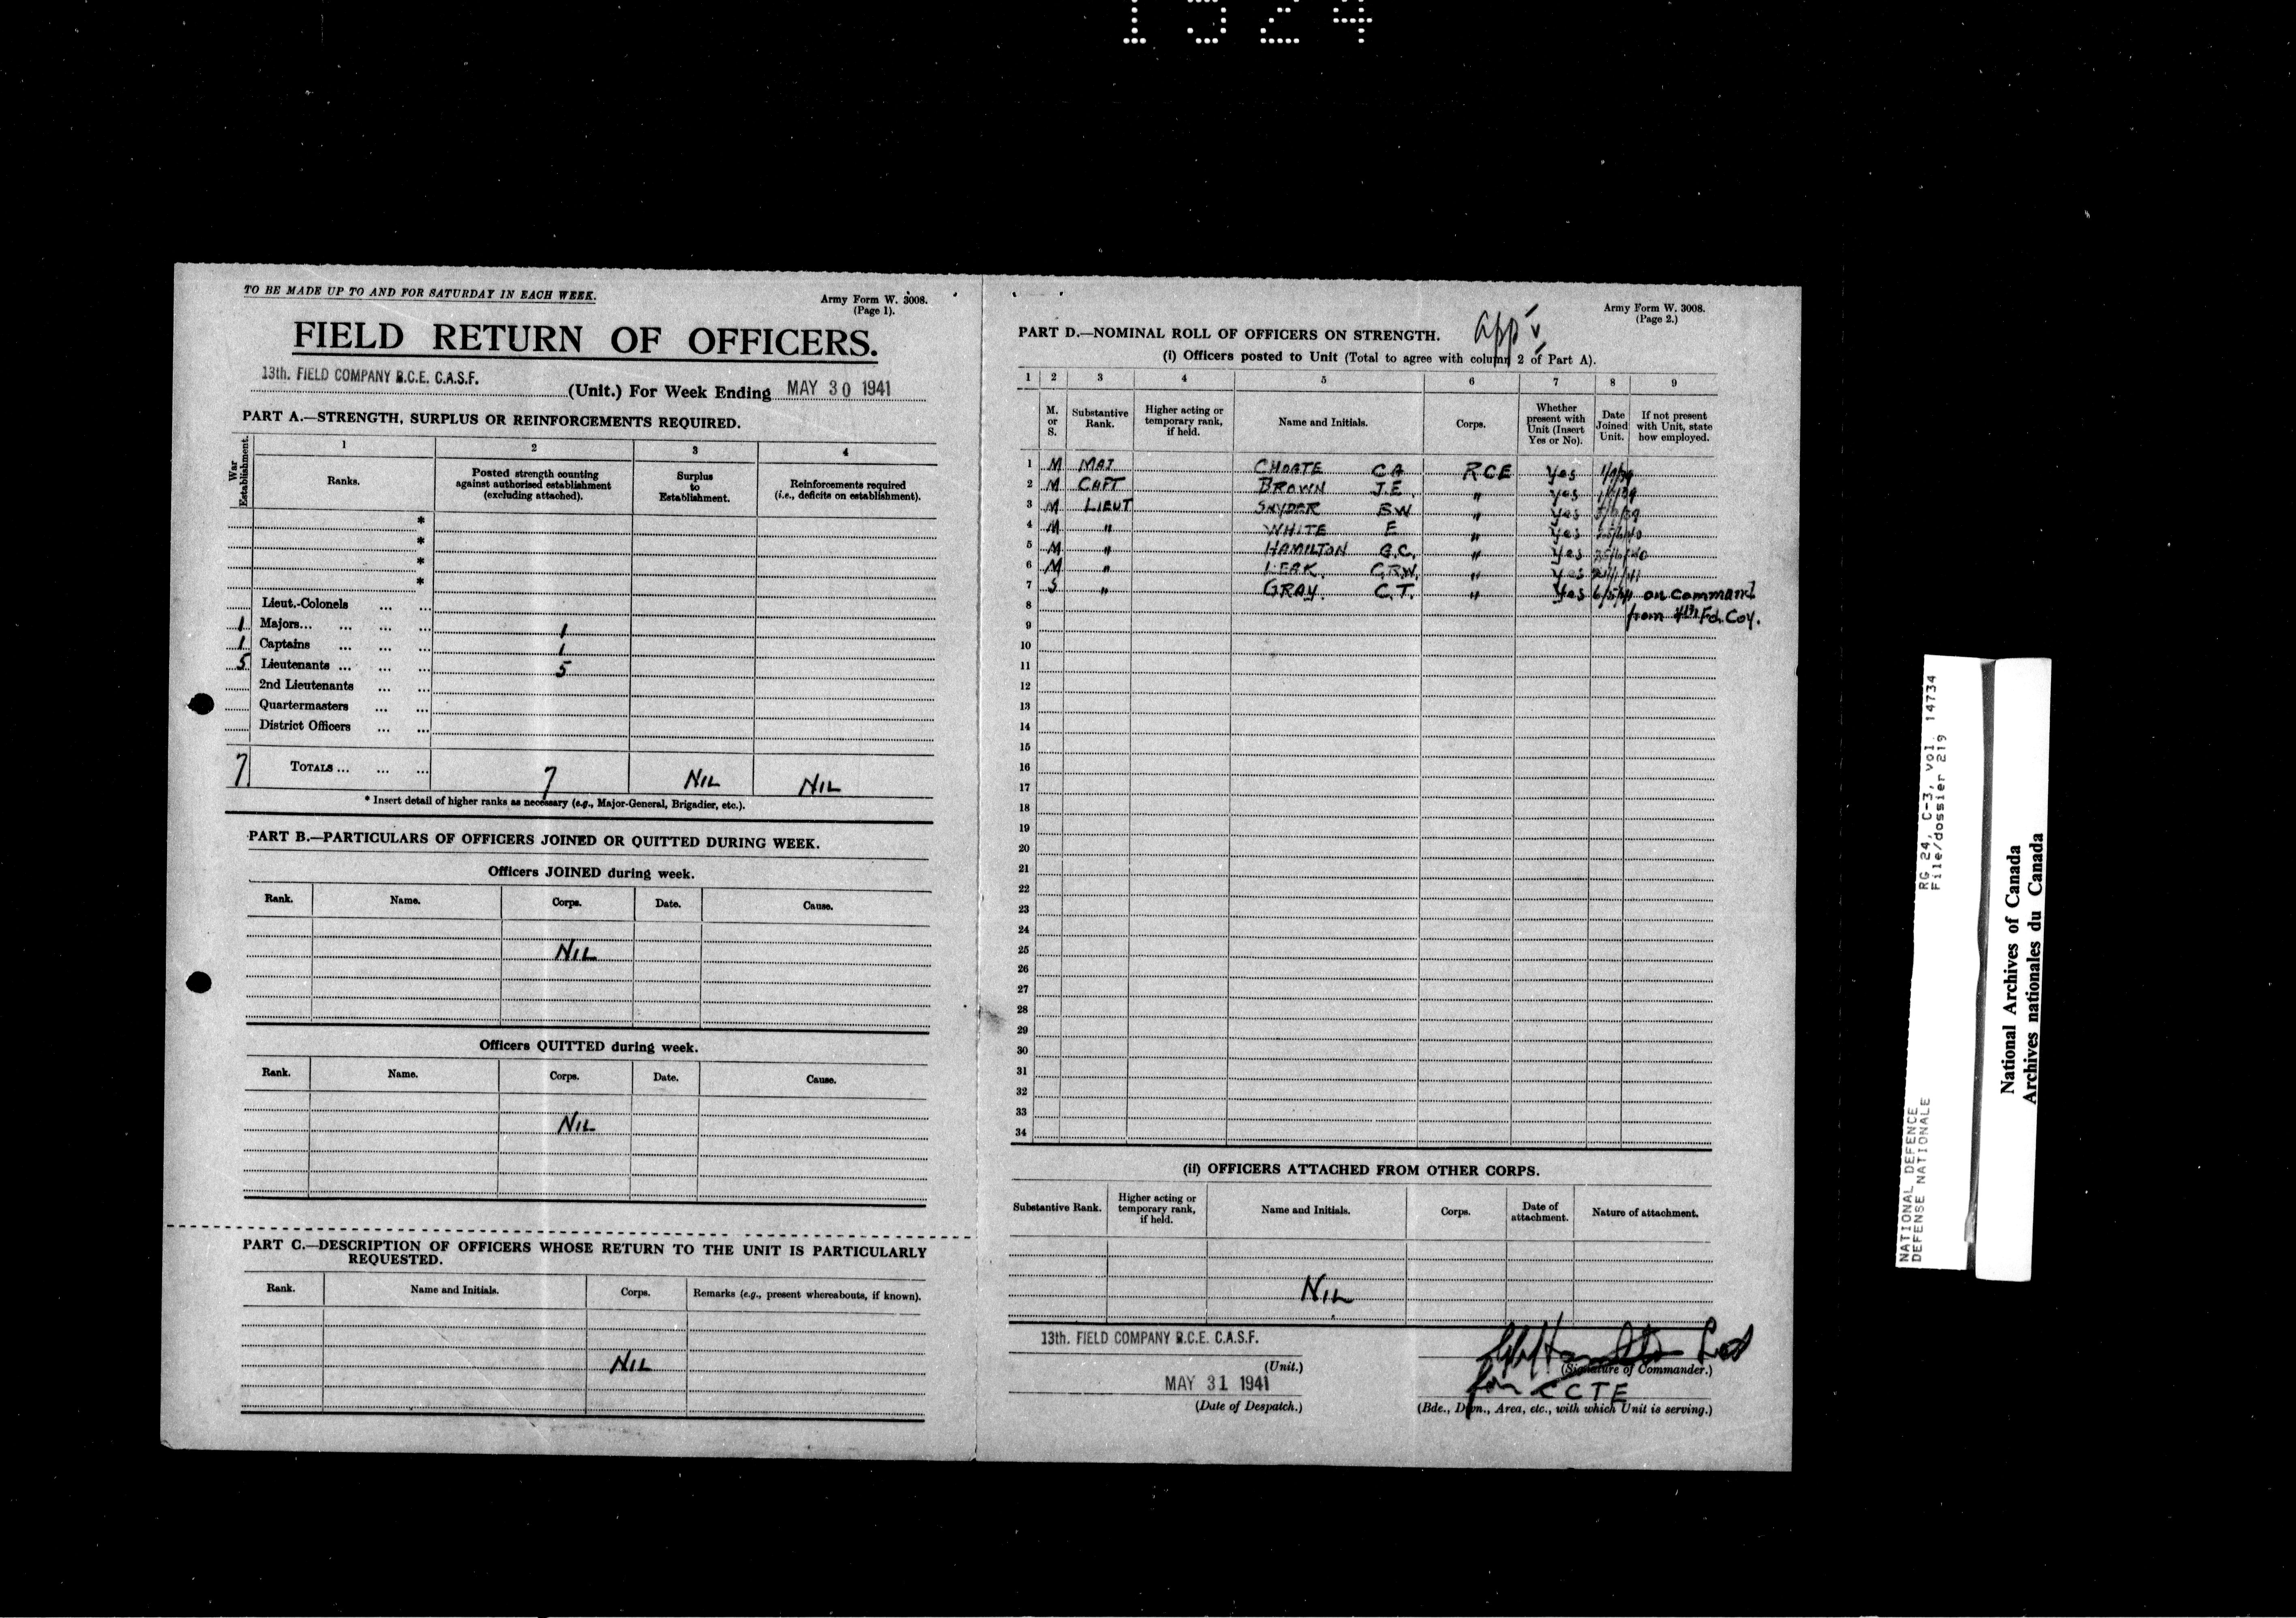 1324
TO BE MADE UP TO AND FOR SATURDAY IN EACH WEEK.
Army Form W. 3008.
(Page 1).
FIELD RETURN OF OFFICERS.
13th. FIELD COMPANY R.C.E. C.A.S.F.
(Unit.) For Week Ending MAY 30 1941
PART A.—STRENGTH, SURPLUS OR REINFORCEMENTS REQUIRED.
War Establishment.
1 2 3 4
Ranks.
Posted strength counting against authorised establishment (excluding attached).
Surplus to Establishment.
Reinforcements required (i.e., deficits on establishment).
*
*
*
*
Lieut.-Colonels ... ...
1 Majors... ... ... ... 1
1 Captains ... ... ... 1
5 Lieutenants ... ... ... 5
2nd Lieutenants ... ...
Quartermasters ... ...
District Officers ... ...
7 TOTALS ... ... ... 7 NIL NIL
* Insert detail of higher ranks as necessary (e.g., Major-General, Brigadier, etc.).
PART B.—PARTICULARS OF OFFICERS JOINED OR QUITTED DURING WEEK.
Officers JOINED during week.
Rank. Name. Corps. Date. Cause.
NIL
Officers QUITTED during week.
Rank. Name. Corps. Date. Cause.
NIL
PART C.—DESCRIPTION OF OFFICERS WHOSE RETURN TO THE UNIT IS PARTICULARLY
REQUESTED.
Rank. Name and Initials. Corps. Remarks (e.g., present whereabouts, if known).
NIL
Army Form W. 3008.
(Page 2.)
PART D.—NOMINAL ROLL OF OFFICERS ON STRENGTH.
App V
(i) Officers posted to Unit (Total to agree with column 2 of Part A).
1 2 3 4 5 6 7 8 9
M. or S.
Substantive Rank.
Higher acting or temporary rank, if held.
Name and Initials.
Corps.
Whether present with Unit (Insert Yes or No).
Date Joined Unit.
If not present with Unit, state how employed.
1 M MAJ CHOATE C A RCE Yes
2 M CAPT BROWN J.E. " Yes
3 M LIEUT SNYDER B W " Yes
4 M " WHITE E " Yes
5 M " HAMILTON G.C. " Yes
6 M " LEAK G.R.W. " Yes
7 S " GRAY. C.T. " Yes 6/5/41 on Command
8 from 4th Fd. Coy.
9
10
11
12
13
14
15
16
17
18
19
20
21
22
23
24
25
26
27
28
29
30
31
32
33
34
(ii) OFFICERS ATTACHED FROM OTHER CORPS.
Substantive Rank.
Higher acting or temporary rank, if held.
Name and Initials.
Corps.
Date of attachment.
Nature of attachment.
NIL
13th. FIELD COMPANY R.C.E. C.A.S.F.
(Unit.)
(Signature of Commander.)
MAY 31 1941
for CCTE
(Date of Despatch.)
(Bde., Divn., Area, etc., with which Unit is serving.)
NATIONAL DEFENCE RG 24, C-3, vol. 14734
DEFENSE NATIONALE File/dossier 219
National Archives of Canada
Archives nationales du Canada